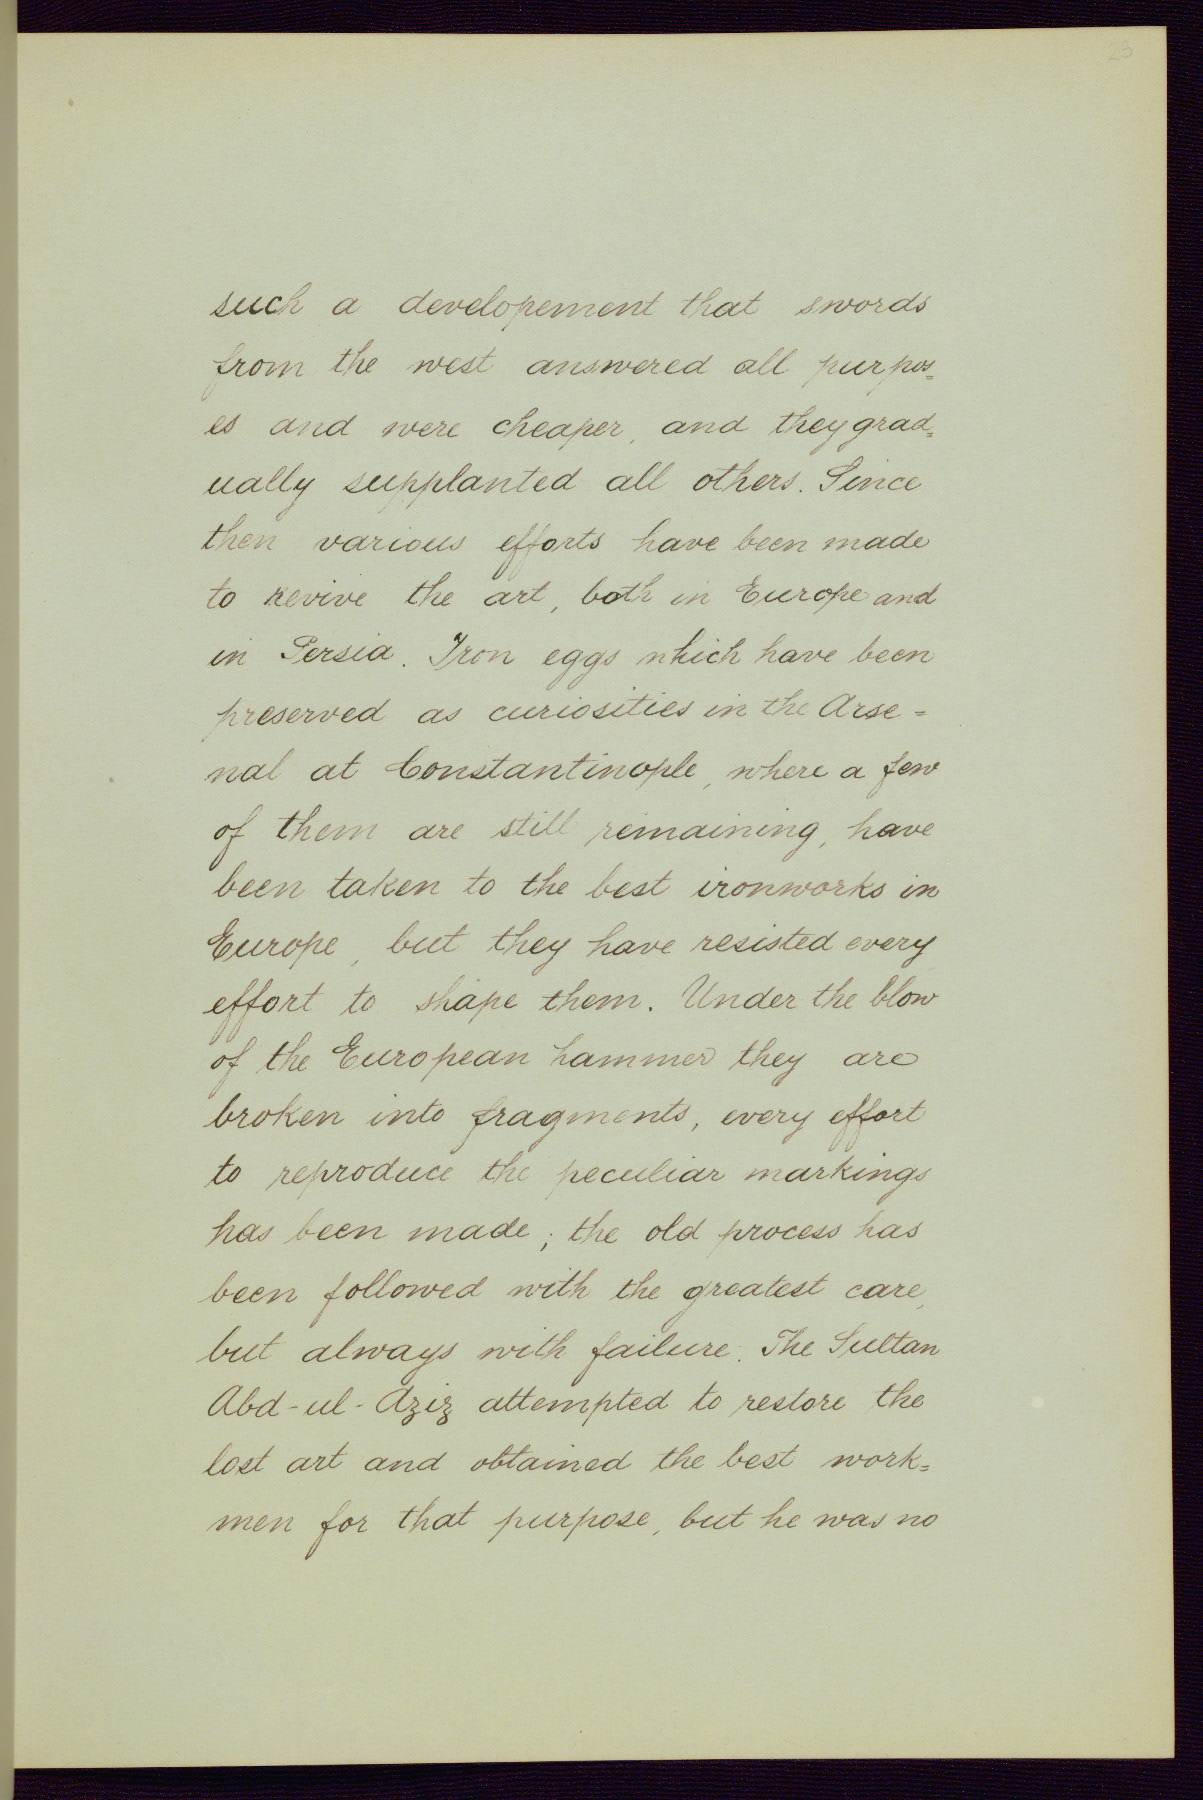 23
such a developement that swords
from the west answered all purpos=
es and were cheaper, and they grad=
ually supplanted all others. Since
then various efforts have been made
to revive the art, both in Europe and
in Persia. Iron eggs which have been
preserved as curiosities in the Arse=
nal at Constantinople, where a few
of them are still remaining, have
been taken to the best ironworks in
Europe, but they have resisted every
effort to shape them. Under the blow
of the European hammer they are
broken into fragments, every effort
to reproduce the peculiar markings
has been made; the old process has
been followed with the greatest care,
but always with failure. The Sultan
Abd-ul-Aziz attempted to restore the
lost art and obtained the best work=
men for that purpose, but he was no